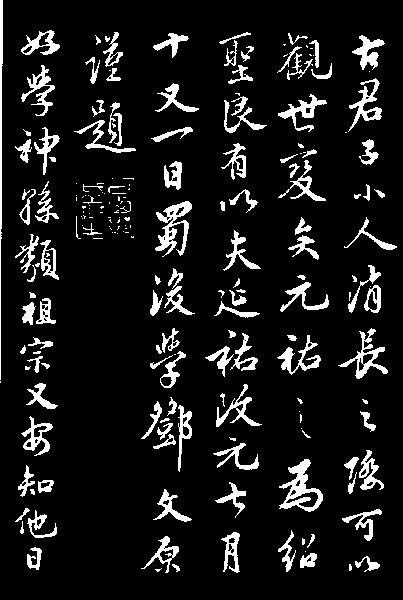 古君子小人消長之際可以
觀世變矣元祐之為紹
聖良有以夫延祐改元七月
十又一日蜀後學鄧文原
謹題
好學神孫類祖宗又安知他日